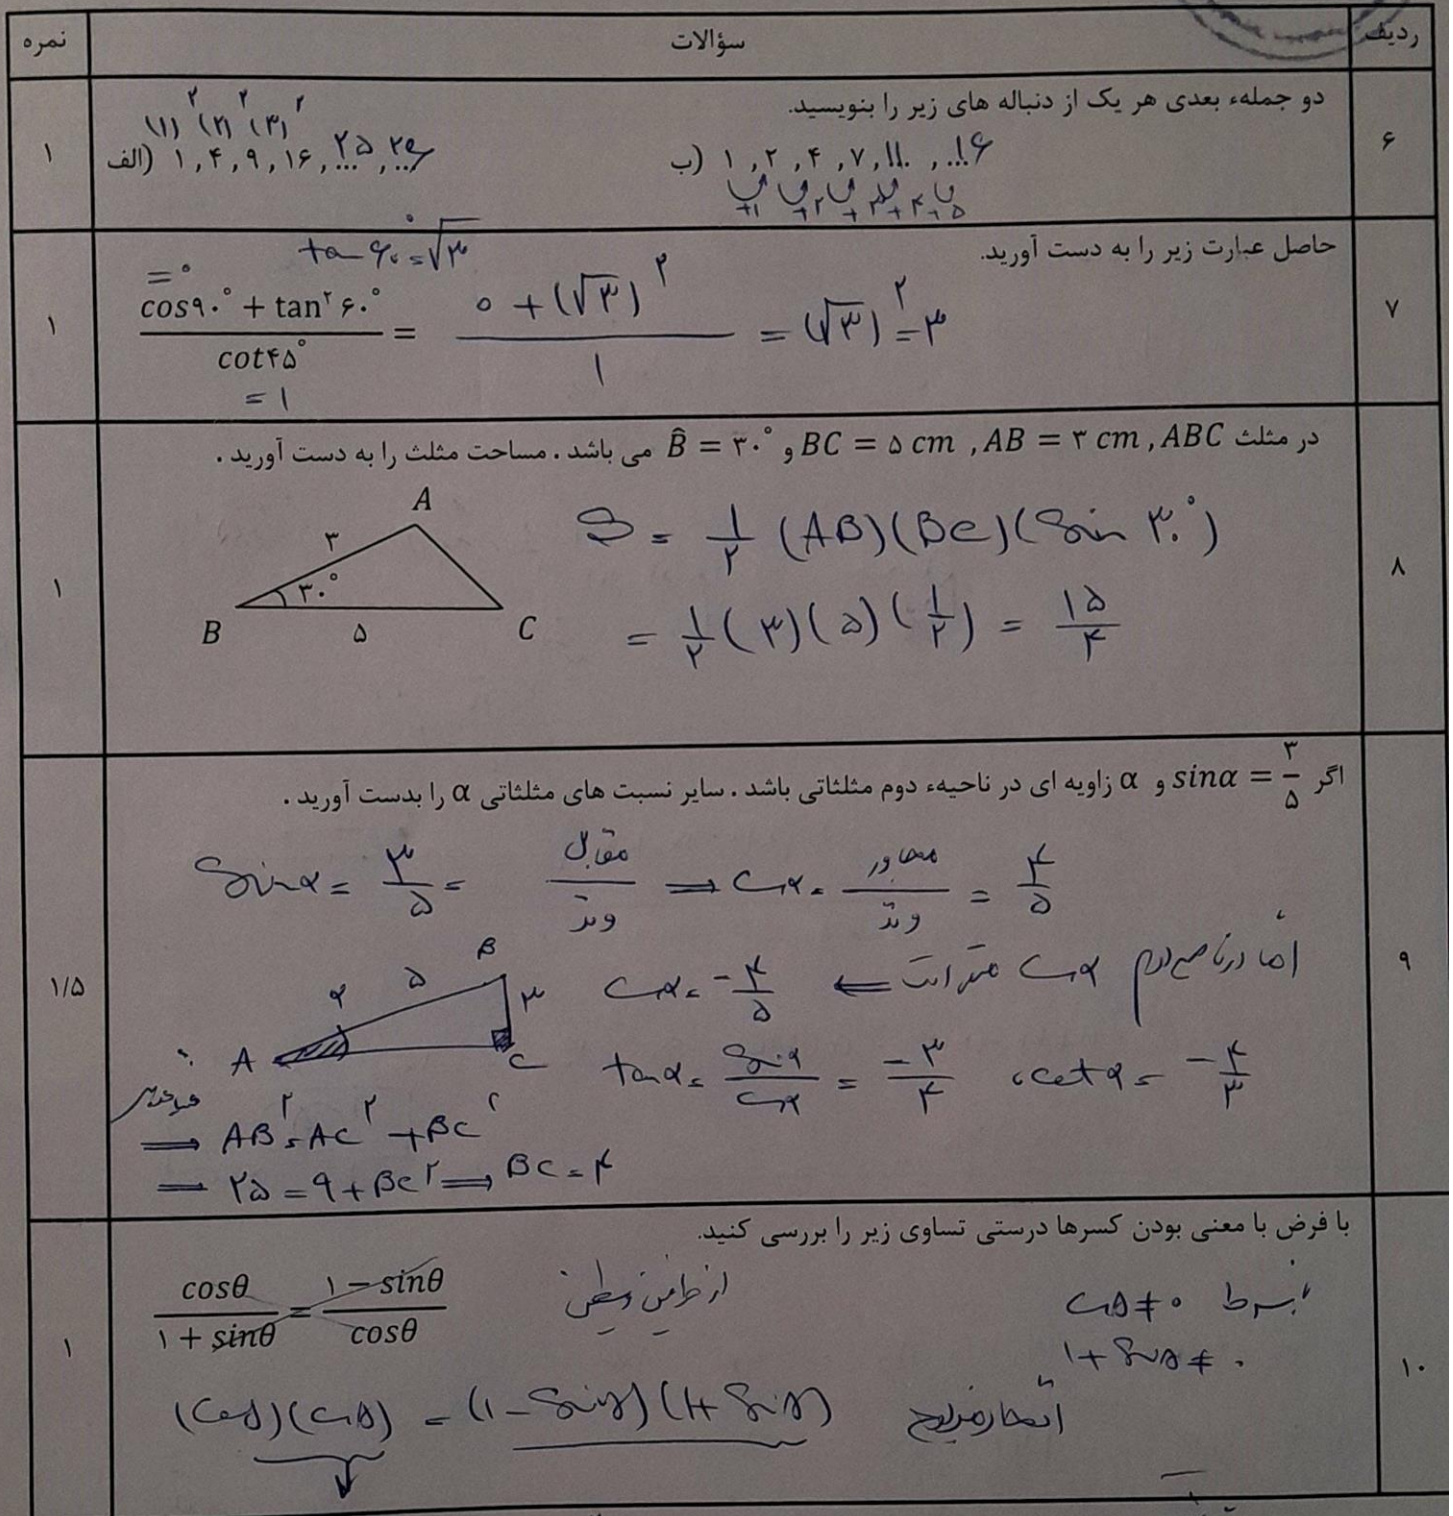 ردیف سؤالات نمره
۶ دو جملهء بعدی هر یک از دنباله های زیر را بنویسید. ۱
(۱)² (۲)² (۳)²
الف) ۱ , ۴ , ۹ , ۱۶ , ۲۵... , ۳۶...
ب) ۱ , ۲ , ۴ , ۷ , ۱۱... , ...۱۶
+۱ +۲ +۳ +۴ +۵
۷ حاصل عبارت زیر را به دست آورید. ۱
tan ۶۰° = √۳
= ۰
(cos۹۰° + tan²۶۰°) / cot۴۵° = (۰ + (√۳)²) / ۱ = (√۳)² = ۳
= ۱
۸ در مثلث ABC , AB = ۳ cm , BC = ۵ cm و B̂ = ۳۰° می باشد . مساحت مثلث را به دست آورید . ۱
A
۳
۳۰°
B ۵ C
S = ۱/۲ (AB)(BC)(Sin ۳۰°)
= ۱/۲ (۳)(۵)(۱/۲) = ۱۵/۴
۹ اگر sinα = ۳/۵ و α زاویه ای در ناحیهء دوم مثلثاتی باشد . سایر نسبت های مثلثاتی α را بدست آورید . ۱/۵
Sinα = ۳/۵ = مقابل/وتر ⇒ Cosα = مجاور/وتر = ۴/۵
اما در ناحیه دوم Cosα منفی است ⇐ Cosα = -۴/۵
B
۵ ۳
α
A C
tanα = Sinα/Cosα = -۳/۴ ، cotα = -۴/۳
⇒ AB² = AC² + BC²
⇒ ۲۵ = ۹ + BC² ⇒ BC = ۴
۱۰ با فرض با معنی بودن کسرها درستی تساوی زیر را بررسی کنید. ۱
cosθ/(۱ + sinθ) = (۱ − sinθ)/cosθ
از طرفین وسطین
بشرط Cosθ ≠ ۰
۱ + Sinθ ≠ ۰
(Cosθ)(Cosθ) = (۱ − Sinθ)(۱ + Sinθ)
اتحاد مزدوج